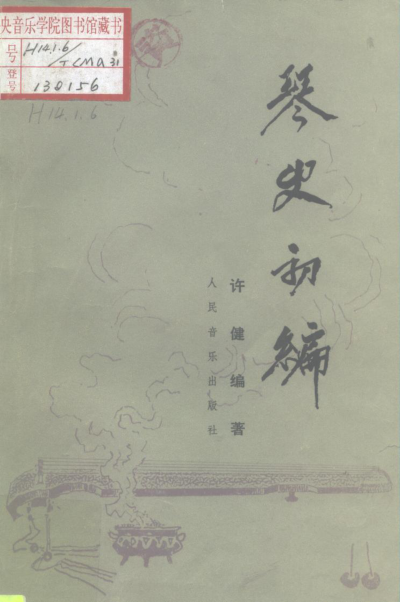 央音乐学院图书馆藏书
号 H14.1.6/
/TCMA31
登号 130156
H14.1.6
琴史初编
许健编著
人民音乐出版社